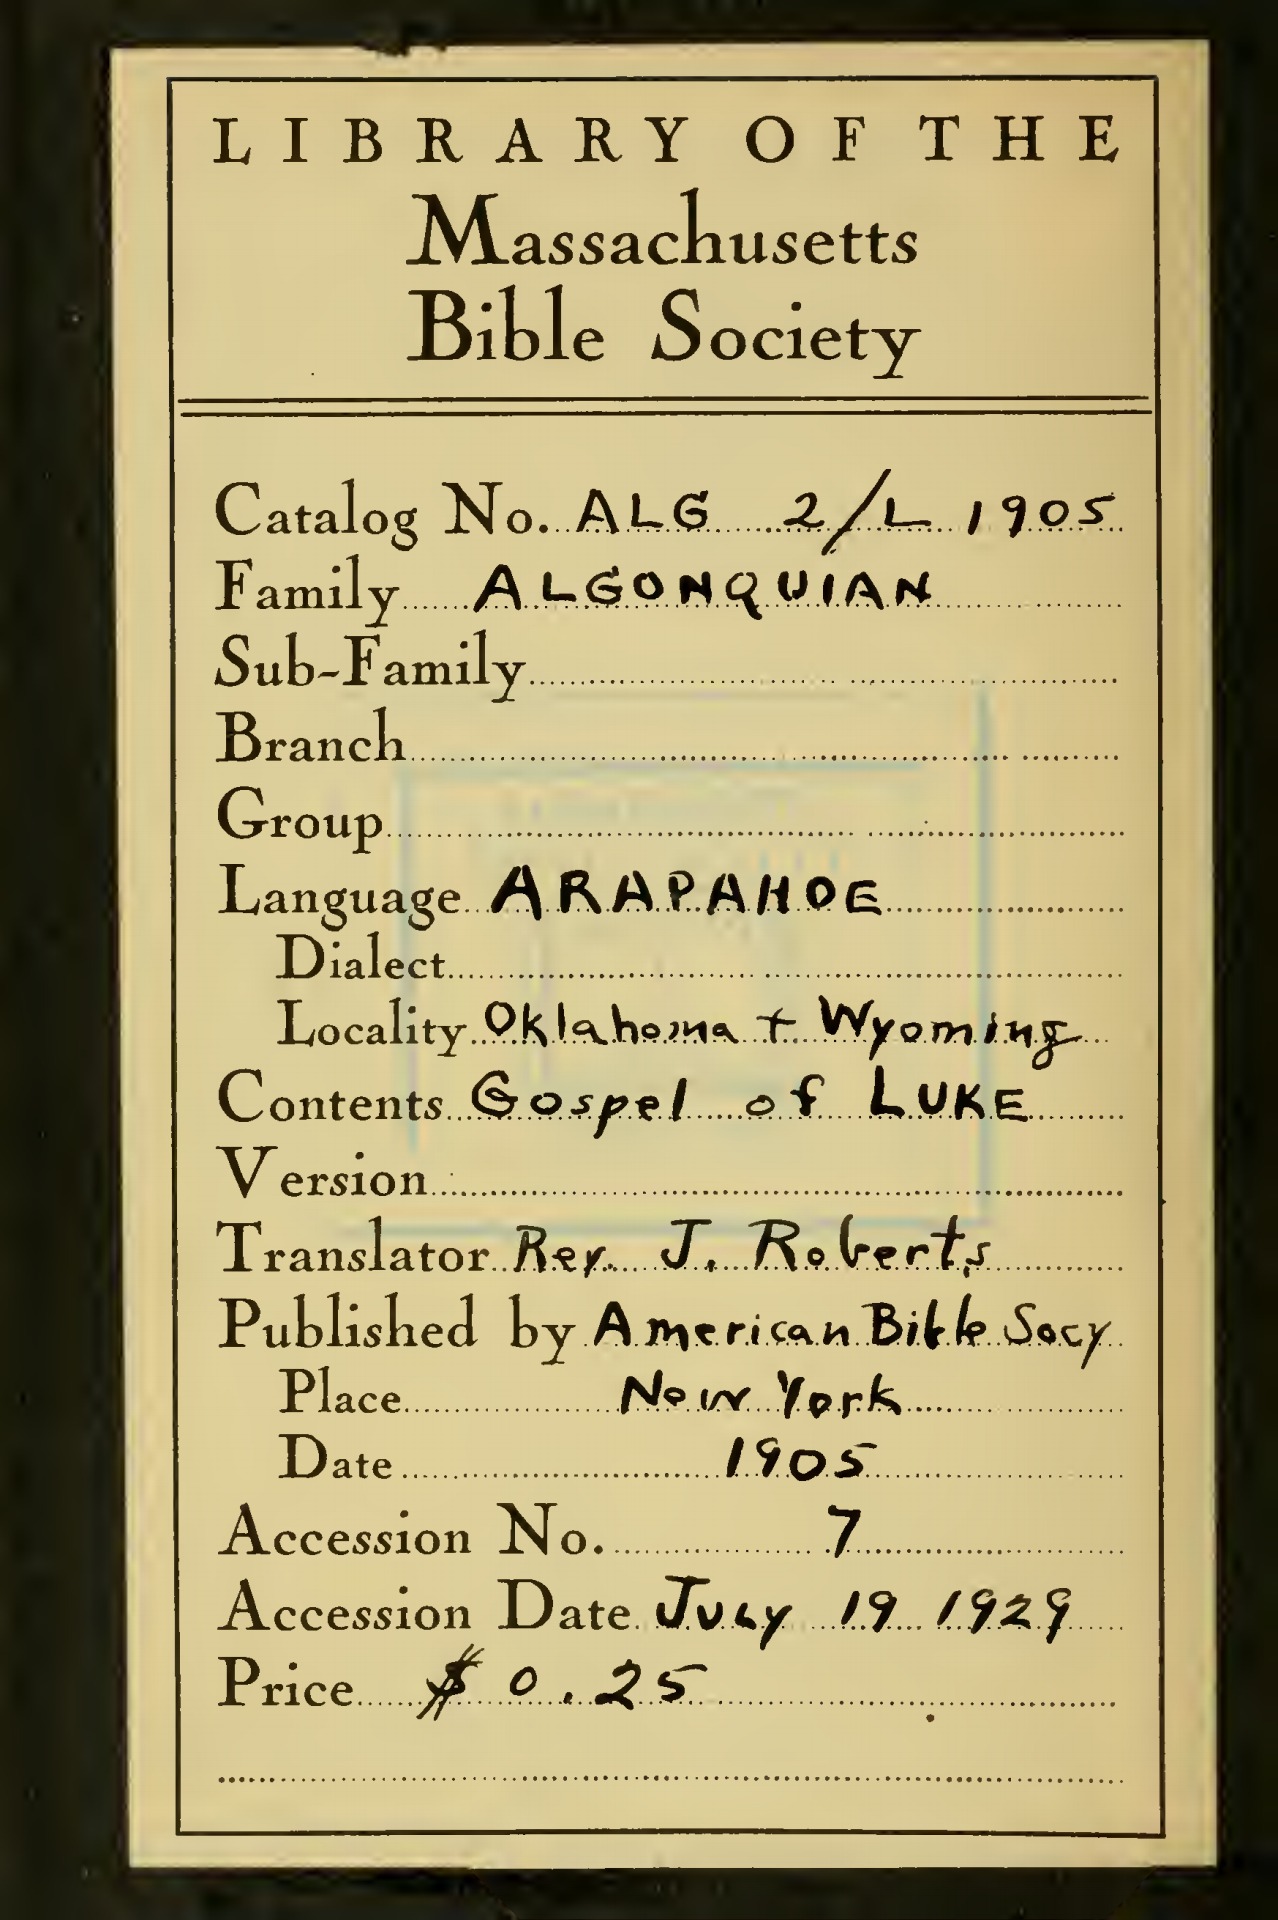 LIBRARY OF THE
Massachusetts
Bible Society
Catalog No. ALG 2/L 1905
Family ALGONQUIAN
Sub-Family
Branch
Group
Language ARAPAHOE
Dialect
Locality Oklahoma + Wyoming
Contents Gospel of LUKE
Version
Translator Rev. J. Roberts
Published by American Bible Socy
Place New York
Date 1905
Accession No. 7
Accession Date July 19 1929
Price $ 0.25